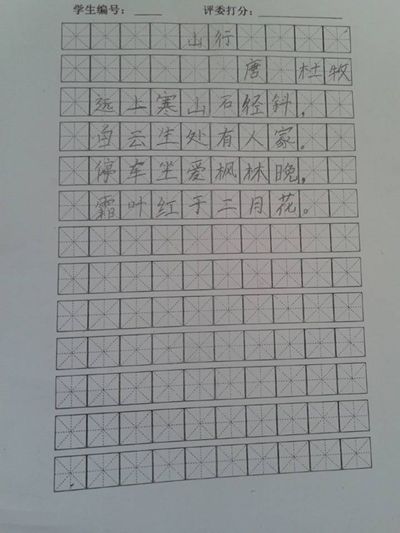 学生编号： 评委打分：
山行
唐 杜牧
远上寒山石经斜，
白云生处有人家。
停车坐爱枫林晚，
霜叶红于二月花。